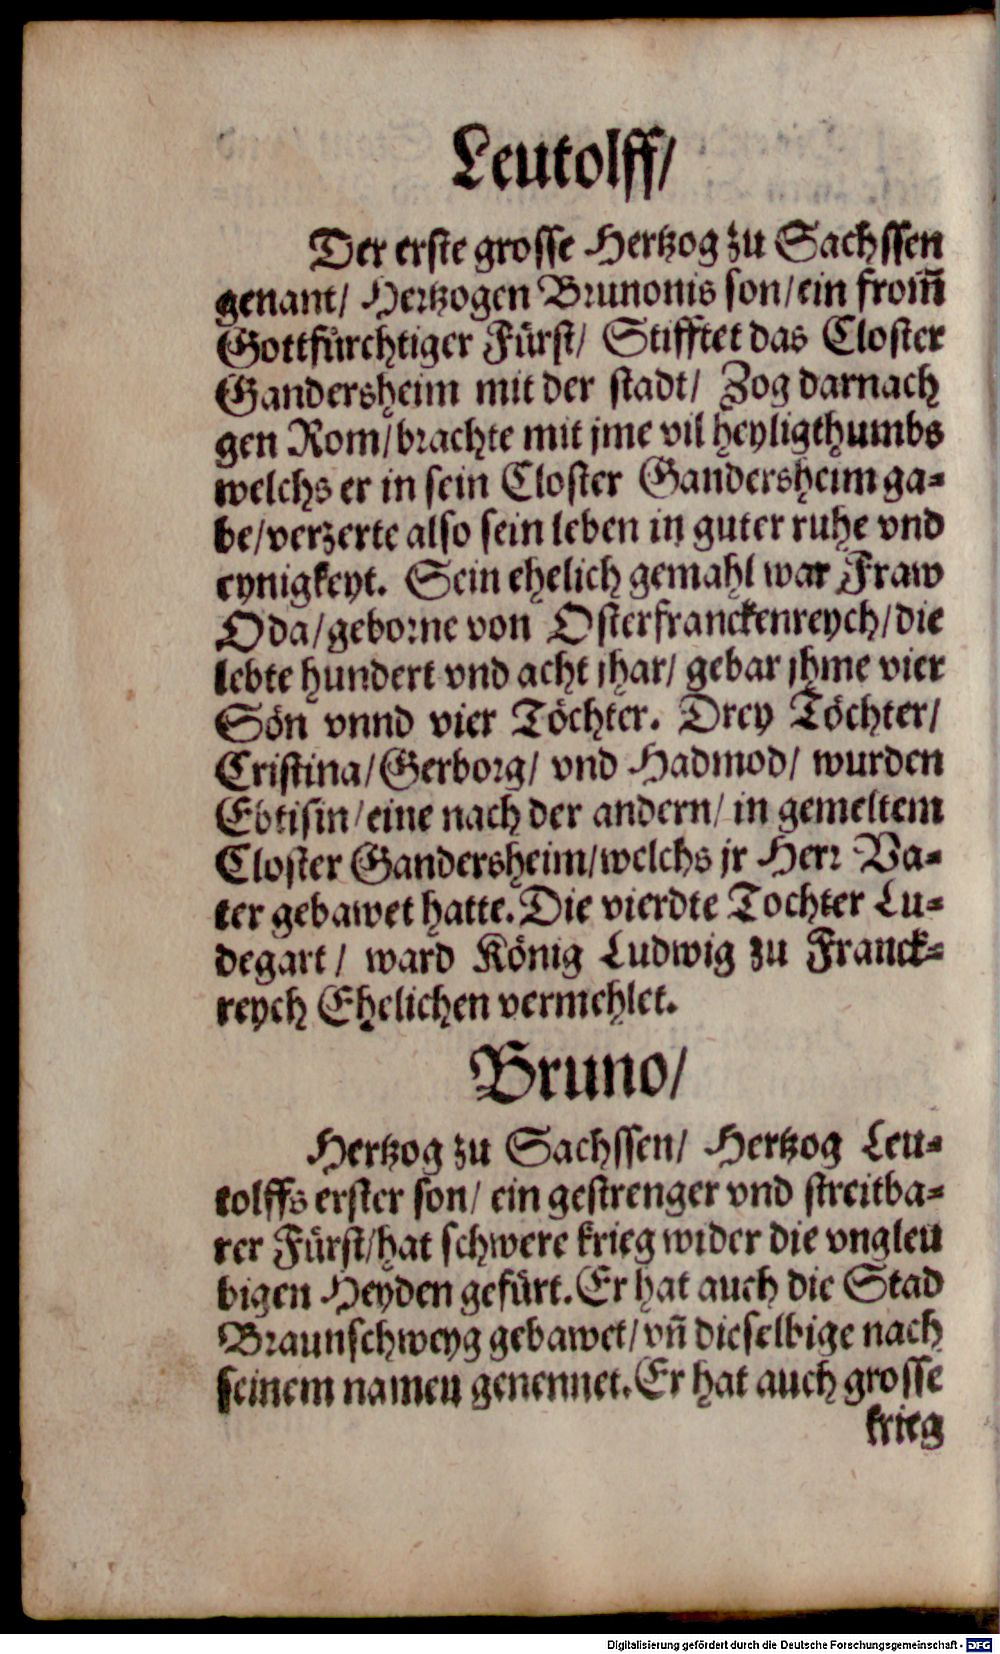 Leutolff/
Der erste grosse Hertzog zu Sachssen
genant/ Hertzogen Brunonis son/ein from̄
Gottfürchtiger Fürst/ Stifftet das Closter
Gandersheim mit der stadt/ Zog darnach
gen Rom/brachte mit jme vil heyligthumbs
welchs er in sein Closter Gandersheim ga-
be/verzerte also sein leben in guter ruhe vnd
eynigkeyt. Sein ehelich gemahl war Fraw
Oda/geborne von Osterfranckenreych/die
lebte hundert vnd acht jhar/ gebar jhme vier
Sön vnnd vier Töchter. Drey Töchter/
Cristina/Gerborg/ vnd Hadmod/ wurden
Ebtisin/eine nach der andern/ in gemeltem
Closter Gandersheim/welchs jr Herr Va-
ter gebawet hatte. Die vierdte Tochter Lu-
degart/ ward König Ludwig zu Franck-
reych Ehelichen vermehlet.
Bruno/
Hertzog zu Sachssen/ Hertzog Leu-
tolffs erster son/ ein gestrenger vnd streitba-
rer Fürst/hat schwere krieg wider die vngleu
bigen Heyden gefürt. Er hat auch die Stad
Braunschweyg gebawet/ vn̄ dieselbige nach
seinem namen genennet. Er hat auch grosse
krieg
Digitalisierung gefördert durch die Deutsche Forschungsgemeinschaft - DFG